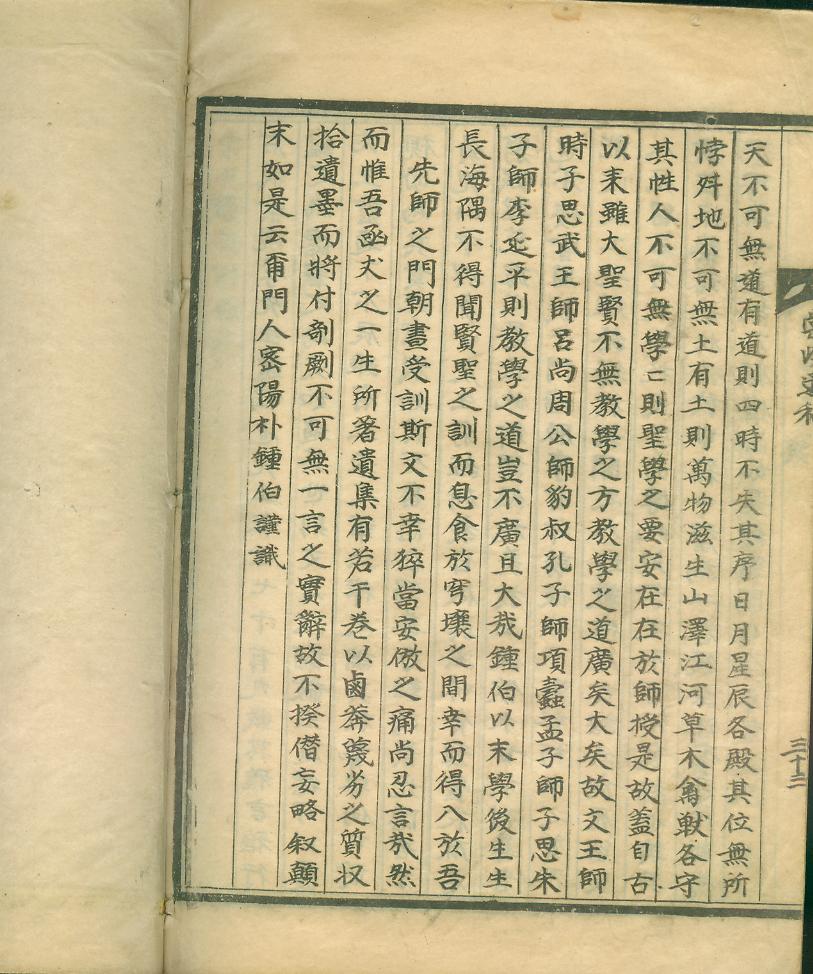 天不可無道有道則四時不失其序日月星辰各殿其位無所
悖舛地不可無土有土則萬物滋生山澤江河草木禽獸各守
其性人不可無學〻則聖學之要安在在於師授是故盖自古
以来雖大聖賢不無教學之方教學之道廣矣大矣故文王師
時子思武王師呂尚周公師豹叔孔子師項橐孟子師子思朱
子師李延平則教學之道豈不廣且大㢤鍾伯以末學後生生
長海隅不得聞賢聖之訓而息食於穹壤之間幸而得入於吾
先師之門朝晝受訓斯文不幸猝當安倣之痛尚忍言㢤然
而惟吾函丈之一生所著遺集有若干卷以鹵莽蔑劣之質収
拾遺墨而將付剞劂不可無一言之實辭故不揆僭妄略叙顛
末如是云甭門人密陽朴鍾伯謹識
三十三